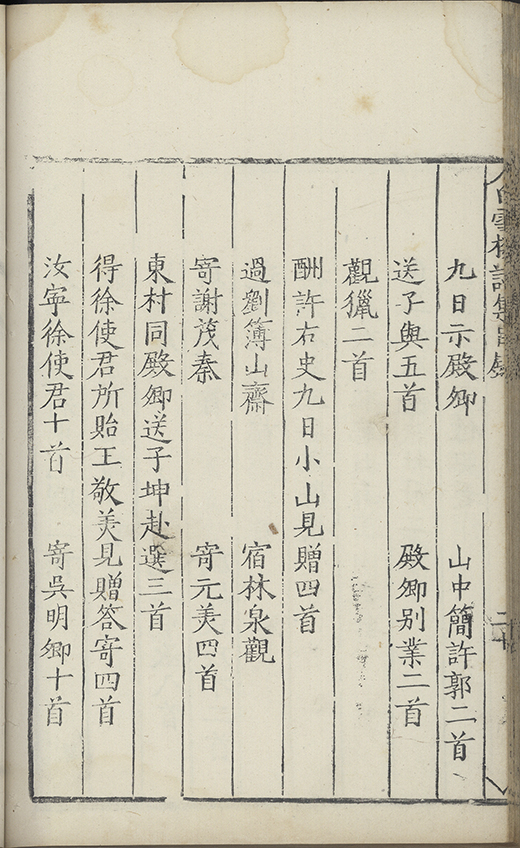 白雪樓詩集目錄 二十
九日示殿卿 山中簡許郭二首
送子與五首 殿卿别業二首
觀獵二首
酬許右史九日小山見贈四首
過劉簿山齋 宿林泉觀
寄謝茂秦 寄元美四首
東村同殿卿送子坤赴選三首
得徐使君所貽王敬美見贈答寄四首
汝寧徐使君十首 寄吳明卿十首